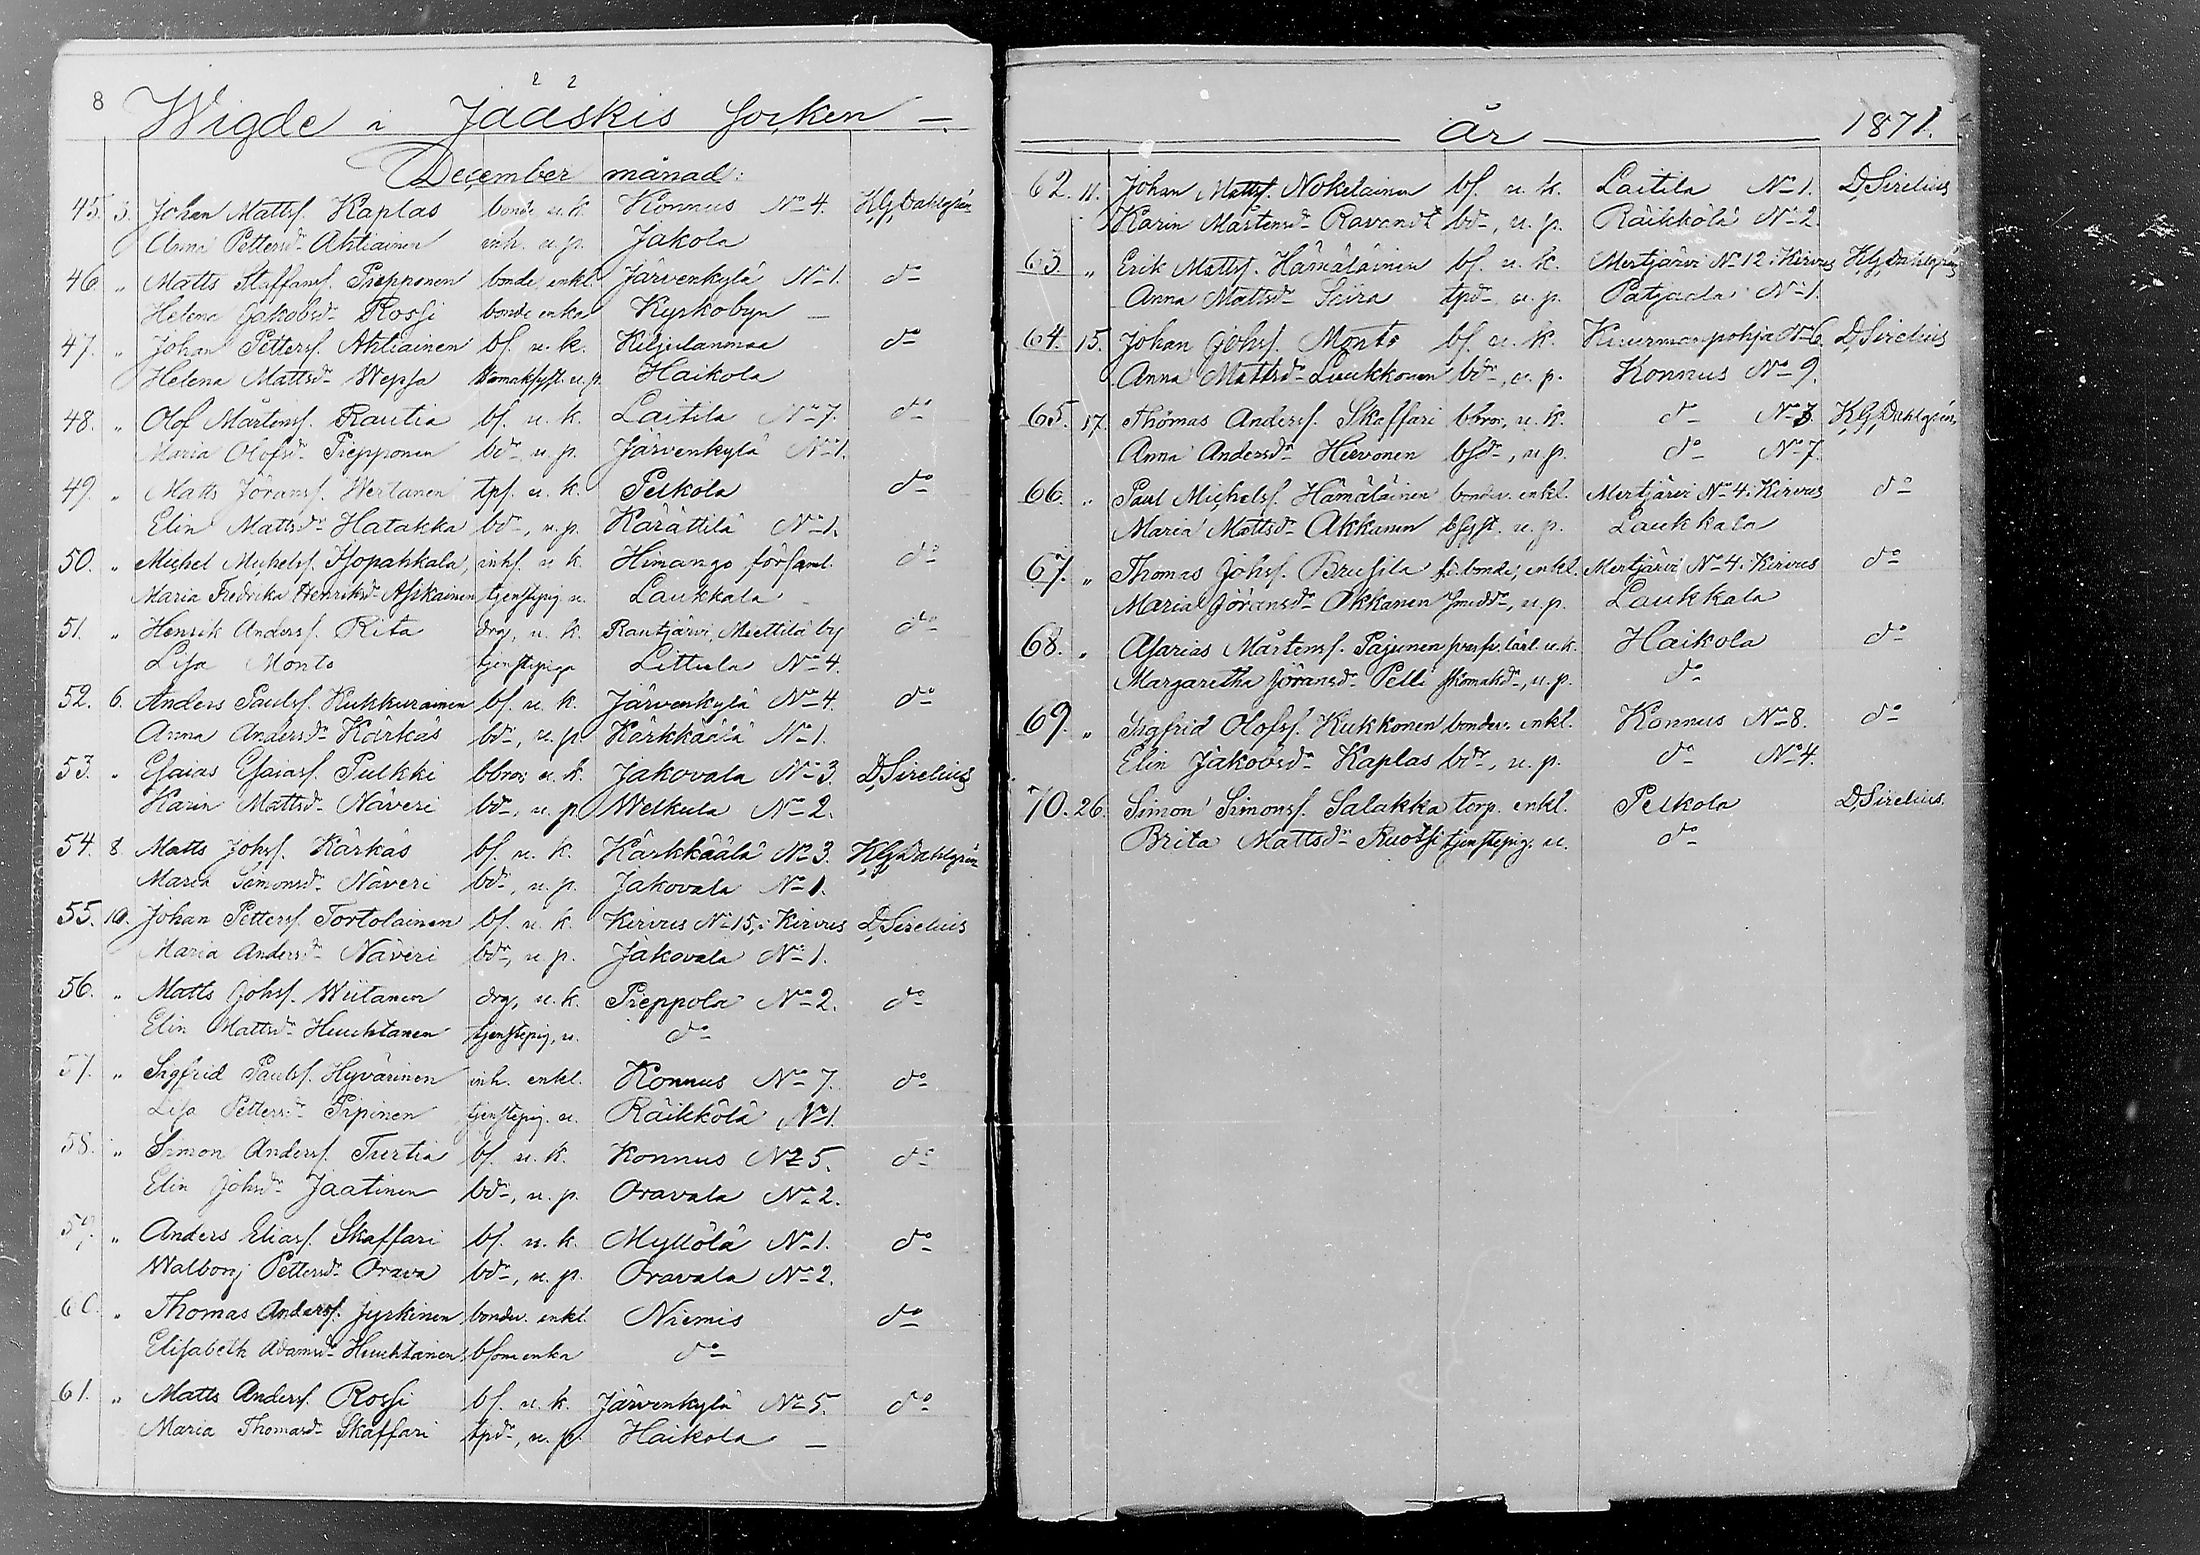 8 Wigde i Jääskis socken —
December månad:
45. 3. Johan Mattss. Kaplas bonde, u. k. Konnus No 4. K. G. Dahlgrén
Anna Pettersdr Ahtiainen inh. u. p. Jakola
46. „ Matts Staffanss. Piepponen bonde enkl. Järvenkylä No 1. do
Helena Jakobsdr Rossi bonde enka Kyrkobyn —
47. „ Johan Petterss. Ahtiainen bs. u. k. Kiljulanmaa do
Helena Mattsdr Wepsa u. p. Haikola
48. „ Olof Mårtenss. Rautia bs. u. k. Laitila No 7. do
Maria Olofsdr Piepponen bdr u. p. Järvenkylä No 1.
49. „ Matts Jöranss. Wertanen tps. u. k. Pelkola do
Elin Mattsdr Hatakka bdr, u. p. Kärättilä No 1.
50. „ Michel Michelss. Isopahkala, inhs. u. k. Himango församl. do
Maria Fredrika Henriksdr Asikainen tjenstepig. u. Laukkala
51. „ Henrik Anderss. Rita drg, u. k. Rantjärvi, Miettilä by do
Lisa Monto tjenstepiga Littula No 4.
52. 6. Anders Paulss. Kukkurainen bs. u. k. Järvenkylä No 4. do
Anna Andersdr Kärkäs bdr, u. p. Kärkkäälä No 1.
53. „ Esaias Esaiass. Pulkki bbror, u. k. Jakovala No 3. D. Sirelius
Karin Mattsdr Näveri bdr, u. p. Welkula No 2.
54. 8. Matts Johss. Kärkäs bs. u. k. Kärkkäälä No 3. K. G. Dahlgrén
Maria Simonsdr Näveri bdr, u. p. Jakovala No 1.
55. 10. Johan Petterss. Tortolainen bs. u. k. Kirvus No 15, i Kirvus D. Sirelius
Maria Andersdr Näveri bdr, u. p. Jakovala No 1.
56. „ Matts Johss. Wiitanen drg, u. k. Pieppola No 2. do
Elin Mattsdr Huuhtanen tjenstepig, u. do
57. „ Sigfrid Paulss. Hyvärinen inh. enkl. Konnus No 7. do
Lisa Pettersdr Pipinen tjenstepig. u. Räikkölä No 1.
58. „ Simon Anderss. Tiertia bs. u. k. Konnus No 5. do
Elin Johsdr Jaatinen bdr, u. p. Oravala No 2.
59. „ Anders Eliass. Skaffari bs. u. k. Myllölä No 1. do
Walborg Pettersdr Orava bdr, u. p. Oravala No 2.
60. „ Thomas Anderss. Jyrkinen bonder. enkl. Niemis do
Elisabeth Adamsdr Huuhtanen, bsonenka do
61. „ Matts Anderss. Rossi bs. u. k. Järvenkylä No 5. do
Maria Thomasdr Skaffari tpdr, u. p. Haikola —
År 1871.
62. 11. Johan Mattss. Nokelainen bs. u. k. Laitila No 1. D. Sirelius
Karin Mårtensdr Ravandt bdr, u. p. Räikkölä No 2.
63. „ Erik Mattss. Hämäläinen bs. u. k. Mertjärvi No 12 i Kirvus K. G. Dahlgrén
Anna Mattsdr Siira tpdr, u. p. Patjaala No 1.
64. 15. Johan Johss. Monto bs. u. k. Kuurmanpohja No 6. D. Sirelius
Anna Mattsdr Luukkonen bdr, u. p. Konnus No 9.
65. 17. Thomas Anderss. Skaffari bbror, u. k. do No 3. K. G. Dahlgrén
Anna Andersdr Hirvonen bsdr, u. p. do No 7.
66. „ Paul Michelss. Hämäläinen bonder. enkl. Mertjärvi No 4 i Kirvus do
Maria Mattsdr Akkanen bsyst. u. p. Laukkala
67. „ Thomas Johss. Brusila f.d. bonde, enkl. Mertjärvi No 4 i Kirvus do
Maria Jöransdr Akkanen smeddr, u. p. Laukkala
68. „ Asarias Mårtenss. Pajunen u. k. Haikola do
Margaretha Jöransdr Pelli skomakdr, u. p. do
69. „ Sigfrid Olofss. Kukkonen bonder. enkl. Konnus No 8. do
Elin Jakobsdr Kaplas bdr, u. p. do No 4.
70. 26. Simon Simonss. Salakka torp. enkl. Pelkola D. Sirelius.
Brita Mattsdr Ruotsi tjenstepig. u. do